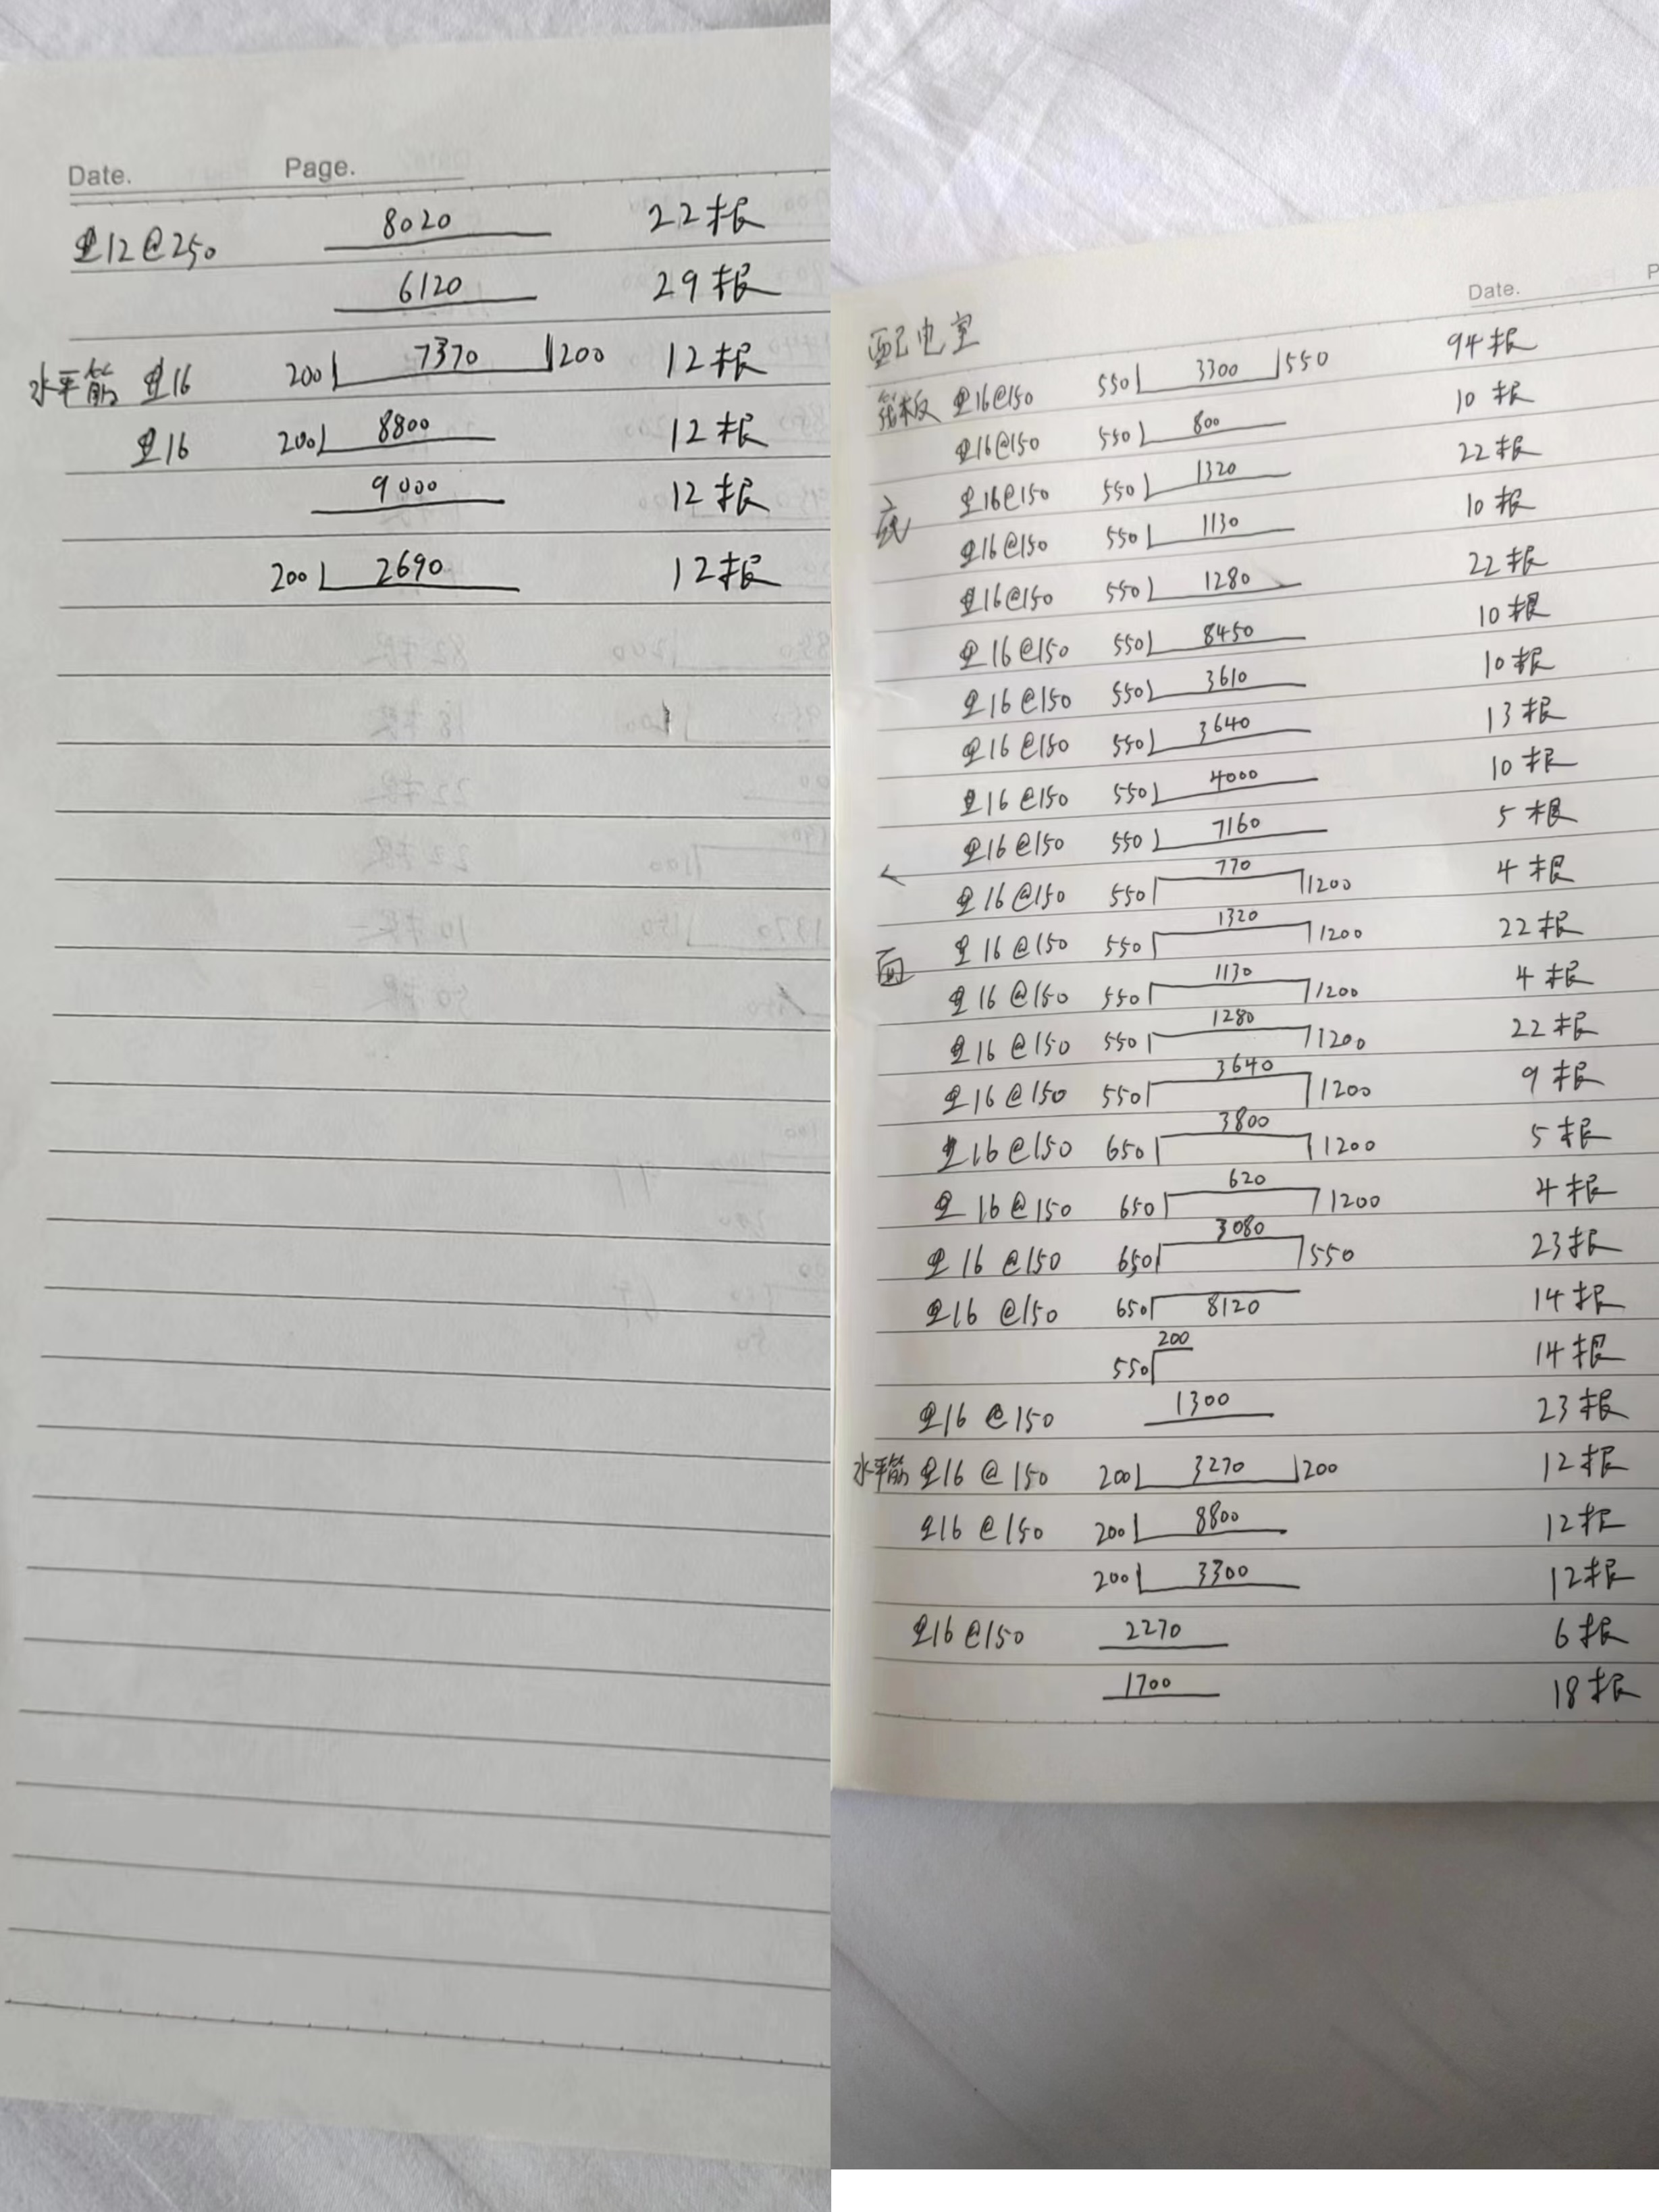 Date. Page.
⌀12@250 8020 22根
6120 29根
水平筋 ⌀16 200 7370 200 12根
⌀16 200 8800 12根
9000 12根
200 2690 12根
Date. P
配电室
筏板 ⌀16@150 550 3300 550 94根
⌀16@150 550 800 10根
底 ⌀16@150 550 1320 22根
⌀16@150 550 1130 10根
⌀16@150 550 1280 22根
⌀16@150 550 8450 10根
⌀16@150 550 3610 10根
⌀16@150 550 3640 13根
⌀16@150 550 4000 10根
⌀16@150 550 7160 5根
⌀16@150 550 770 1200 4根
面 ⌀16@150 550 1320 1200 22根
⌀16@150 550 1130 1200 4根
⌀16@150 550 1280 1200 22根
⌀16@150 550 3640 1200 9根
⌀16@150 650 3800 1200 5根
⌀16@150 650 620 1200 4根
⌀16@150 650 3080 550 23根
⌀16@150 650 8120 14根
550 200 14根
⌀16@150 1300 23根
水平筋 ⌀16@150 200 3270 200 12根
⌀16@150 200 8800 12根
200 3300 12根
⌀16@150 2270 6根
1700 18根